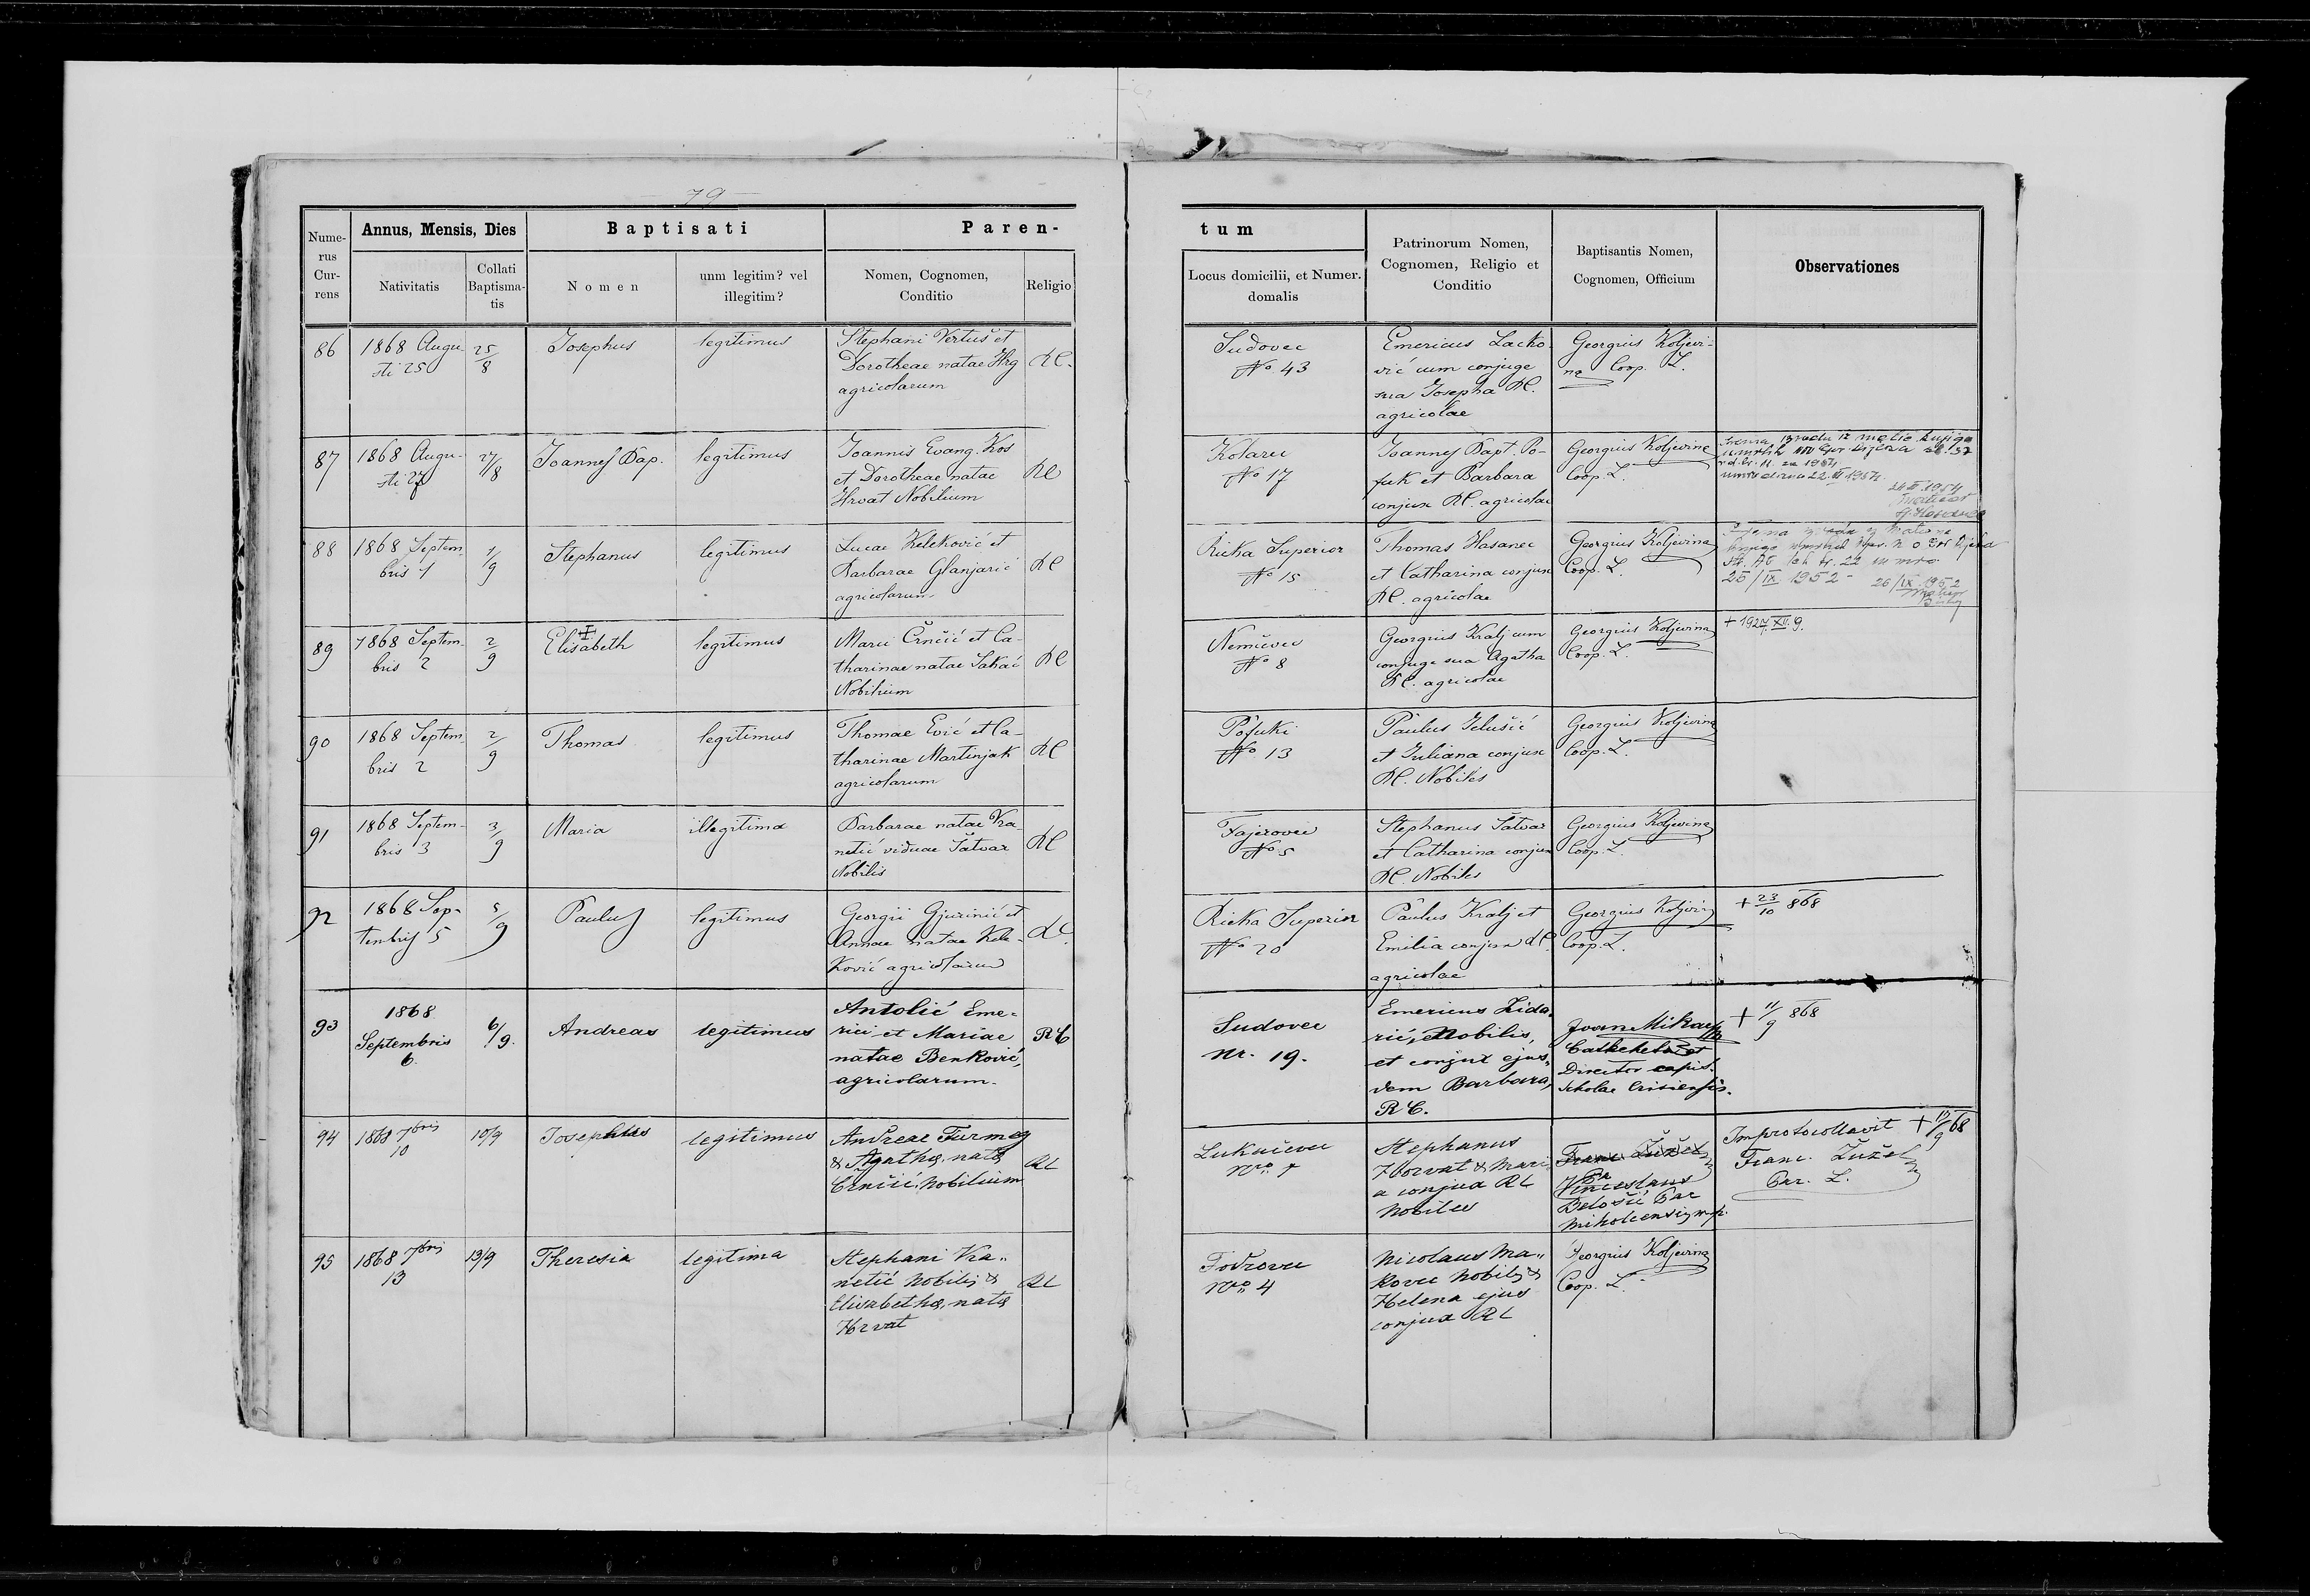 79
Nume-
rus
Cur-
rens
Annus, Mensis, Dies
Nativitatis
Collati
Baptisma-
tis
Baptisati
Nomen
unm legitim? vel
illegitim?
Paren-
Nomen, Cognomen,
Conditio
Religio
tum
Locus domicilii, et Numer.
domalis
Patrinorum Nomen,
Cognomen, Religio et
Conditio
Baptisantis Nomen,
Cognomen, Officium
Observationes
86
1868 Augu-
sti 25
25/8
Josephus
legitimus
Stephani Vertuš et
Dorotheae natae Hrg
agricolarum
RC.
Sudovec
No 43
Emericus Lacko-
vić cum conjuge
sua Josepha RC.
agricolae
Georgius Koljevi-
na Coop. L.
87
1868 Augu-
sti 27
27/8
Joannes Bap.
legitimus
Joannis Evang. Kos
et Dorotheae natae
Hrvat Nobilium
RC
Kolarec
No 17
Joannes Bapt. Po-
fuk et Barbara
conjux RC. agricolae
Georgius Koljevina
Coop. L.
88
1868 Septem-
bris 1
1/9
Stephanus
legitimus
Lucae Keleković et
Barbarae Glanjarić
agricolarum
RC
Rieka Superior
No 15
Thomas Hasanec
et Catharina conjux
RC. agricolae
Georgius Koljevina
Coop. L.
25/IX 1952 -
26/IX. 1952
89
1868 Septem-
bris 2
2/9
Elisabeth
legitimus
Marci Črnčić et Ca-
tharinae natae Sakač
Nobilium
RC
Nemčevec
No 8
Georgius Kralj cum
conjuge sua Agatha
RC. agricolae
Georgius Koljevina
Coop. L.
90
1868 Septem-
bris 2
2/9
Thomas
legitimus
Thomae Ević et Ca-
tharinae Martinjak
agricolarum
RC
Pofuki
No 13
Paulus Jelušić
et Juliana conjux
RC. Nobiles
Georgius Koljevina
Coop. L.
91
1868 Septem-
bris 3
3/9
Maria
illegitima
Barbarae natae Kra-
netić viduae Šatvar
Nobilis
RC
Fajerovec
No 5
Stephanus Šatvar
et Catharina conjux
RC. Nobiles
Georgius Koljevina
Coop. L.
92
1868 Sep-
tembris 5
5/9
Paulus
legitimus
Georgii Gjurinić et
Annae natae Kele-
ković agricolarum
RC.
Rieka Superior
No 20
Paulus Kralj et
Emilia conjux RC.
agricolae
Georgius Koljevin
Coop. L.
+ 23/10 868
93
1868
Septembris
6.
6/9.
Andreas
legitimus
Antolić Eme-
rici et Mariae
natae Benković,
agricolarum.
RC
Sudovec
nr. 19.
Emericus Zida-
rić, Nobilis,
et conjux ejus-
dem Barbara,
RC.
Catheketa et
Director capit.
Scholae Crisiensis.
+ 11/9 868
94
1868 7bris
10
10/9
Josephus
legitimus
Andreae Furmeg
& Agathae, natae
Črnčić, Nobilium
RC
Lukačevec
Stephanus
Horvat & Mari-
a conjux RC
Nobiles
Franc Žužel
Belošić Par
Improtocollavit
Franc. Žužel
Par. L.
95
1868 7bris
13
13/9
Theresia
legitima
Stephani Kra-
netić Nobilis &
Elisabethae, natae
Horvat
RC
Fodrovec
Nro 4
Nicolaus Ma-
kovec Nobilis &
Helena ejus
conjux RC
Georgius Koljevina
Coop. L.